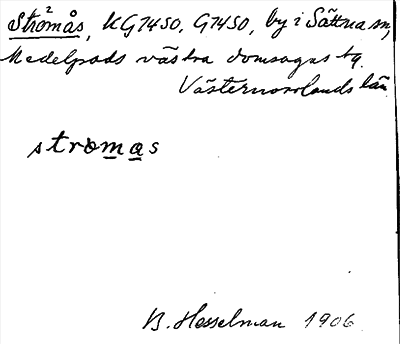 Strömås, KG7450, G7450, by i Sättna sn,
Medelpads västra domsagas tg.
Västernorrlands län
stromas
B. Hesselman 1906